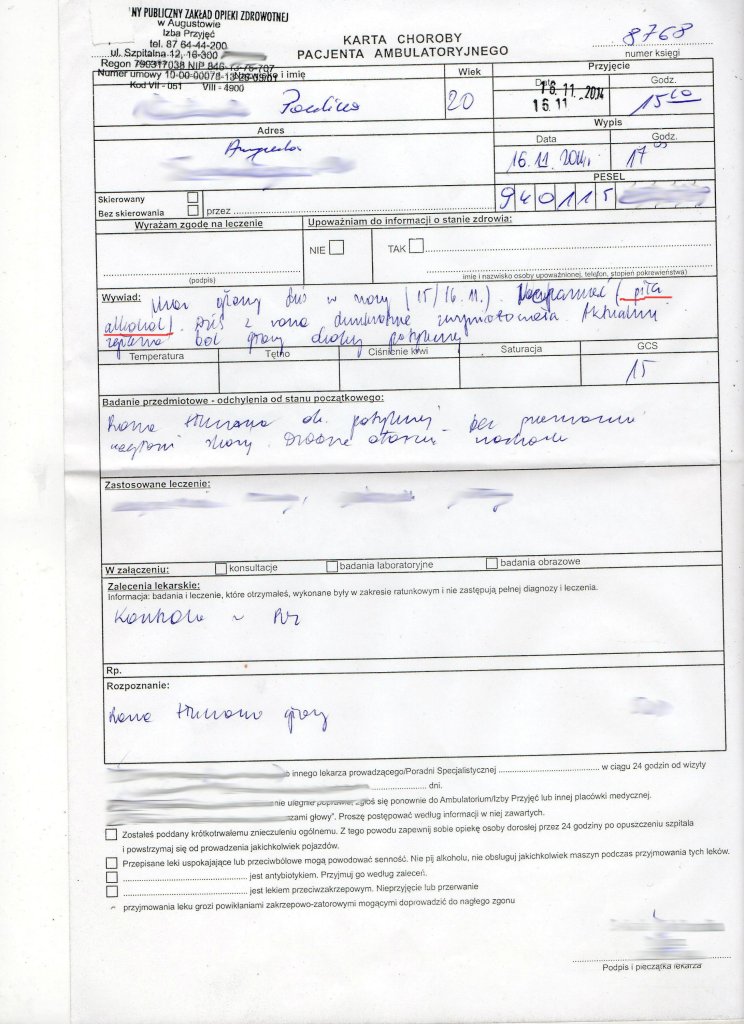 NY PUBLICZNY ZAKŁAD OPIEKI ZDROWOTNEJ
w Augustowie
Izba Przyjęć
tel. 87 64-44-200
ul. Szpitalna 12, 16-300
Regon 790317038 NIP 846-13-75-707
Numer umowy 10-00-00078-13-29-05/01
Kod VII - 051 VIII - 4900
KARTA CHOROBY
PACJENTA AMBULATORYJNEGO
8768
numer księgi
Nazwisko i imię
Wiek
Przyjęcie
Data
Godz.
Paulina
20
16. 11. 2014
16. 11
15 00
Adres
Wypis
Data
Godz.
Augustów
16.11.2014r.
17
PESEL
940115
Skierowany
Bez skierowania
przez
Wyrażam zgodę na leczenie
Upoważniam do informacji o stanie zdrowia:
NIE
TAK
(podpis)
imię i nazwisko osoby upoważnionej, telefon, stopień pokrewieństwa)
Wywiad:
Uraz głowy dziś w nocy (15/16.11.). (piła
alkohol). Dziś z rana dwukrotnie wymiotowała. Aktualnie
zgłasza ból głowy okolicy potylicznej
Temperatura
Tętno
Ciśnienie krwi
Saturacja
GCS
15
Badanie przedmiotowe - odchylenia od stanu początkowego:
Rana tłuczona ok. potylicznej bez przerwania
ciągłości skóry. Drobne otarcia naskórka
Zastosowane leczenie:
W załączeniu:
konsultacje
badania laboratoryjne
badania obrazowe
Zalecenia lekarskie:
Informacja: badania i leczenie, które otrzymałeś, wykonane były w zakresie ratunkowym i nie zastępują pełnej diagnozy i leczenia.
Kontrola w
Rp.
Rozpoznanie:
Rana tłuczona głowy
o innego lekarza prowadzącego/Poradni Specjalistycznej w ciągu 24 godzin od wizyty
dni.
nie ulegnie poprawie, zgłoś się ponownie do Ambulatorium/Izby Przyjęć lub innej placówki medycznej.
zami głowy". Proszę postępować według informacji w niej zawartych.
Zostałeś poddany krótkotrwałemu znieczuleniu ogólnemu. Z tego powodu zapewnij sobie opiekę osoby dorosłej przez 24 godziny po opuszczeniu szpitala
i powstrzymaj się od prowadzenia jakichkolwiek pojazdów.
Przepisane leki uspokajające lub przeciwbólowe mogą powodować senność. Nie pij alkoholu, nie obsługuj jakichkolwiek maszyn podczas przyjmowania tych leków.
jest antybiotykiem. Przyjmuj go według zaleceń.
jest lekiem przeciwzakrzepowym. Nieprzyjęcie lub przerwanie
przyjmowania leku grozi powikłaniami zakrzepowo-zatorowymi mogącymi doprowadzić do nagłego zgonu
Podpis i pieczątka lekarza